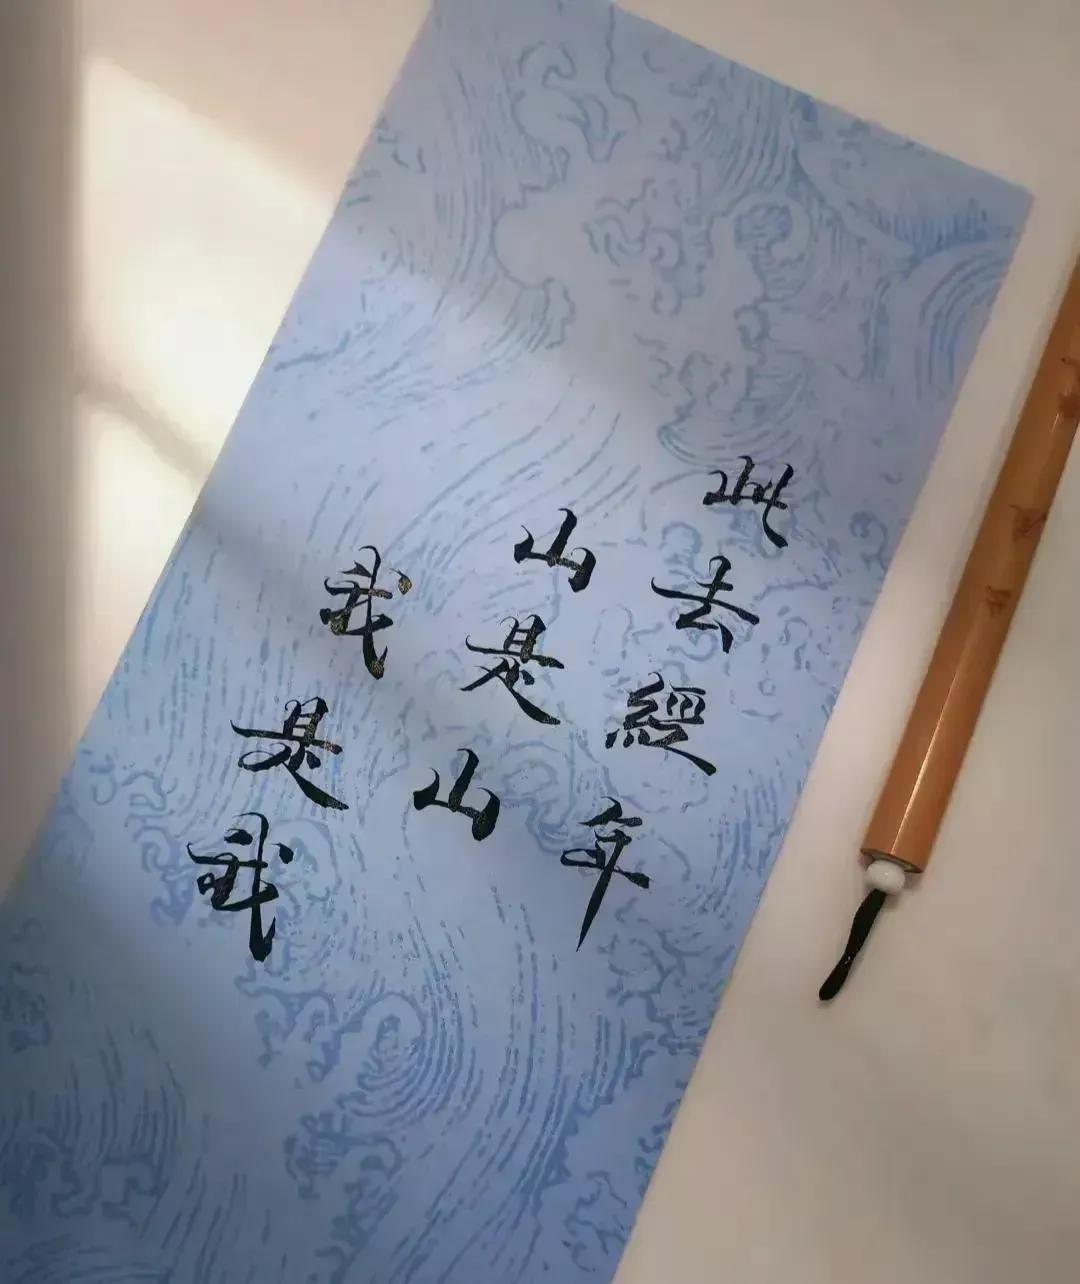 此去經年
山是山
我是我